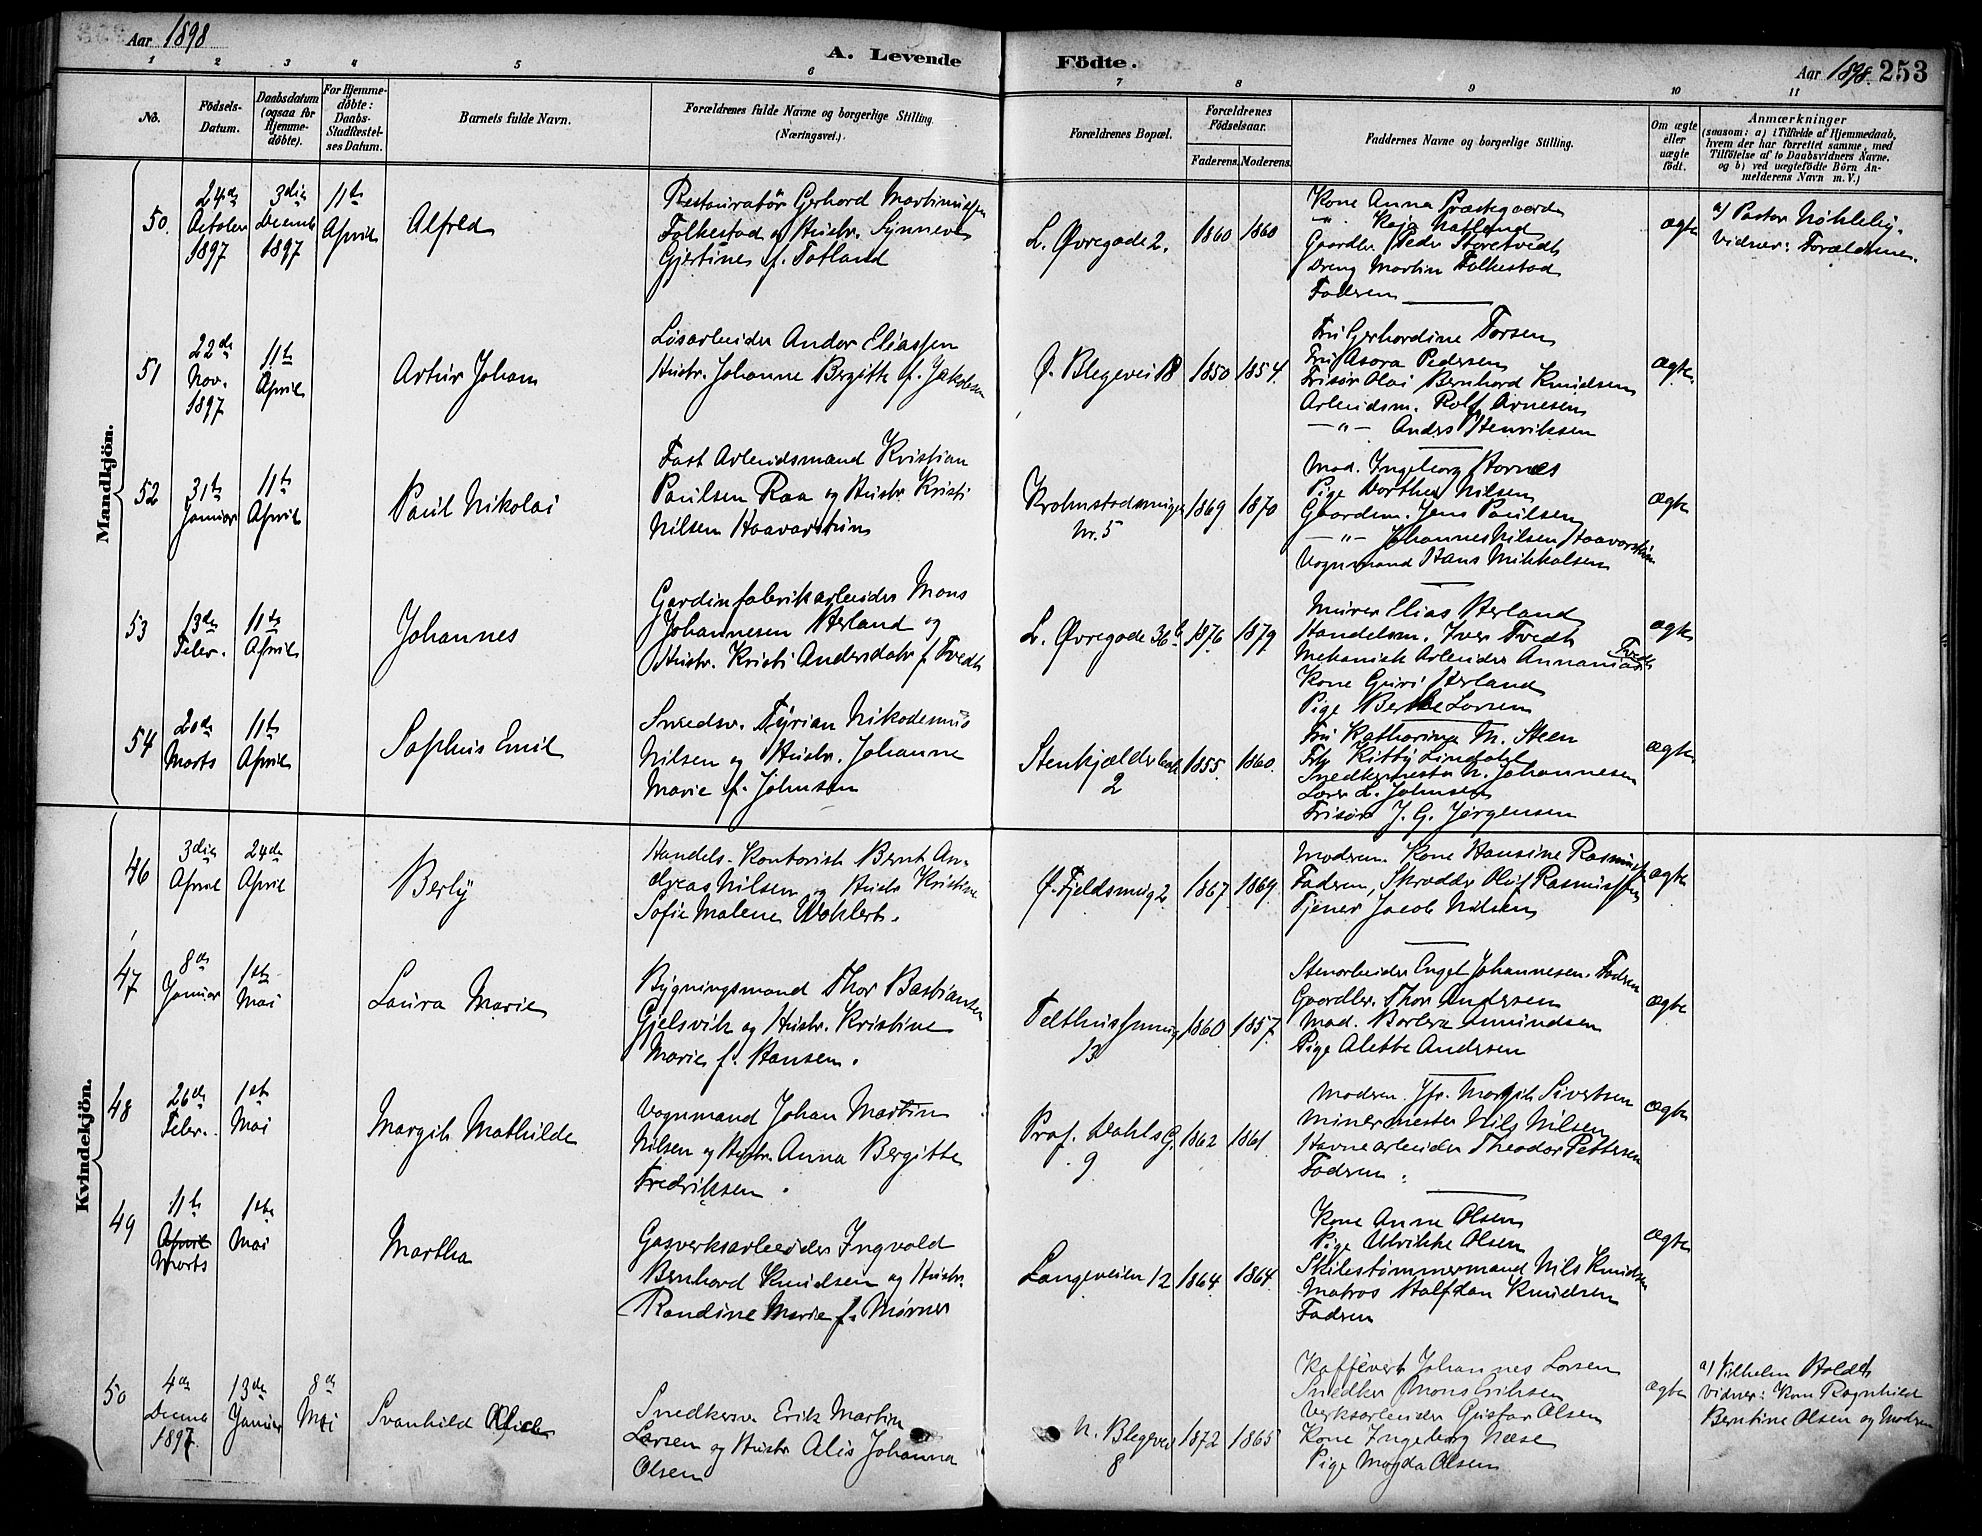 Aar 1898
A. Levende
Födte.
Aar 1898. 253
1 2 3 4 5 6 7 8 9 10 11
No.
Födsels-
Datum.
Daabsdatum
(ogsaa for
Hjemme-
döbte).
For Hjemme-
döbte:
Daabs-
Stadfæstel-
ses Datum.
Barnets fulde Navn.
Forældrenes fulde Navne og borgerlige Stilling.
(Næringsvei.)
Forældrenes Bopæl.
Forældrenes
Födselsaar.
Faderens. Moderens.
Faddernes Navne og borgerlige Stilling.
Om ægte
eller
uægte
födt.
Anmærkninger
(saasom: a) i Tilfælde af Hjemmedaab,
hvem der har forrettet samme, med
Tilföielse af to Daabsvidners Navne,
og b) ved uægtefödte Börn An-
melderens Navn m. V.)
Mandkjön.
50.
24de
October
1897
3die
Decemb
1897
11te
April
Alfred
Restauratør Gerhard Martinussen
Folkestad og Hustr. Synneve
Gjertine f. Totland
L. Øvregade 2.
1860 1860
Kone Anna Præstegaard
-"- Kaja Natland
Gaardbr. Peder Storetvedt
Dreng Martin Folkestad
Faderen
ægte
a) Pastor Nøkleby.
Vidner: Forældrene.
51
22de
Nov.
1897
11te
April
Artur Johan
Løsarbeider Andor Eliassen
Hustr. Johanne Bergitte f. Jakobsen
Ø. Blegevei 18
1850 1854.
Fru Gerhardine Torsen
Fru Asora Pedersen
Frisør Olai Bernhard Knudsen
Arbeidsm. Rolf Arnesen
-"- Anders Henriksen
ægte
52
31te
Januar
11te
April
Paul Nikolai
Fast Arbeidsmand Kristian
Paulsen Raa og Hustr Kristi
Nilsen Haavarstun
Krohnstadsmuget
Nr. 5
1869 1870
Mad. Ingeborg Hornes
Pige Dorthea Nilsen
Gaardm. Jens Paulsen
-"- Johannes Nilsen Haavarstun
Vognmand Hans Mikkalsen
ægte
53
13de
Febr.
11te
April
Johannes
Gardinfabrikarbeider Mons
Johannesen Herland og
Hustr. Kristi Andersdatr f Tvedt
L. Øvregade 36b
1876 1879
Murer Elias Herland
Handelsm. Iver Tvedt
Mekanisk Arbeider Annanias Tvedt
Kone Guri Herland
Pige Berthe Larsen
ægte
54
20de
Marts
11te
April
Sophus Emil
Snedsv. Fyrian Nikodemus
Nilsen og Hustr. Johanne
Marie f. Johnsen
Stenkjælderbak
2
1855. 1860.
Fru Katharina M. Steen
Frk Kitty Lindahl
Snedkermester N. Johannesen
Lærer L. Johnsen
Frisør J. G. Jørgensen
ægte
Kvindekjön.
46
3die
April
24de
April
Berly
Handels-Kontorist Bernt An-
dreas Nilsen og Hustr Kristine
Sofie Malene Wahlert.
Ø. Fjeldsmug 2.
1867. 1869.
Moderen. Kone Hansine Rasmussen
Faderen, Skrædder Oluf Rasmussen
Tjener Jacob Nilsen
ægte
47
8de
Januar
1ste
Mai
Laura Marie
Bygningsmand Thor Bastiansen
Gjelsvik og Hustr. Kristine
Marie f. Hansen.
Telthussmug
13
1860 1857.
Stenarbeider Engel Johannesen. Faderen
Gaardbr. Thor Andersen
Mad. Barbra Amundsen
Pige Alette Andersen
ægte
48
26de
Febr.
1ste
Mai
Margit Mathilde
Vognmand Johan Martin
Nilsen og Hustr. Anna Bergitte
Fredriksen.
Prof. Dahls G.
9
1862 1861.
Moderen. Jfr. Margit Sivertsen
Minermester Nils Nilsen
Havnearbeider Theodor Pettersen
Faderen.
ægte
49
11te
April
Marts
1ste
Mai
Martha
Gasverksarbeider Ingvald
Bernhard Knudsen og Hustr.
Randine Marie f. Mørner
Langeveien 12
1864 1864.
Kone Anne Olsen
Pige Ulrikke Olsen
Skibstømmermand Nils Knudsen
Matros Halfdan Knudsen
Faderen
ægte
50
4de
Decemb
1897.
13de
Januar
8de
Mai
Svanhild Alice
Snedkersv. Erik Martin
Larsen og Hustr Alis Johanna
Olsen
N. Blegevei
8
1872 1865
Kaffevert Johannes Larsen
Snedker Mons Eriksen
Verksarbeider Gustav Olsen
Kone Ingeborg Næse
Pige Magda Olsen
ægte
a) Vilhelm Holdt
Vidner: Kone Ragnhild
Berntine Olsen og Moderen